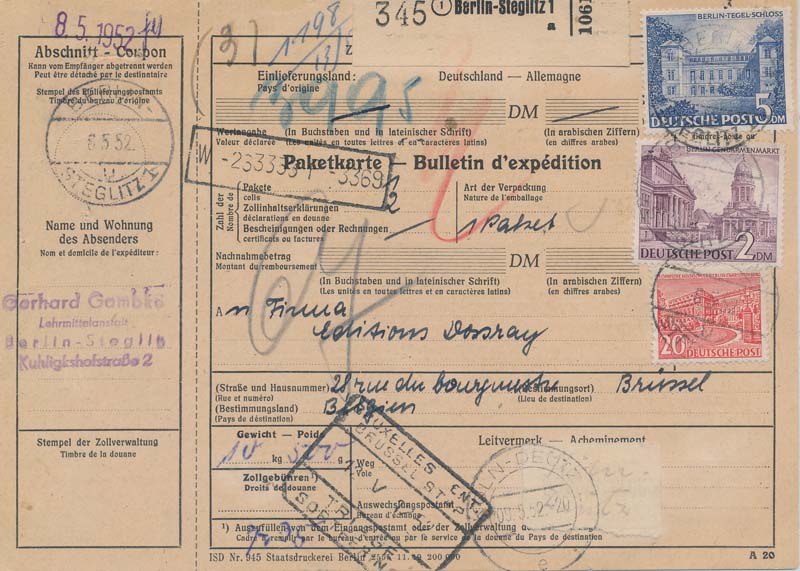 8. 5. 1952
Abschnitt - Coupon
Kann vom Empfänger abgetrennt werden
Peut être détaché par le destinataire
Stempel des Einlieferungspostamts
Timbre du bureau d'origine
8.5.52.
STEGLITZ 1
Name und Wohnung
des Absenders
Nom et domicile de l'expéditeur:
Gerhard Gambke
Lehrmittelanstalt
Berlin-Steglitz
Kuhligkshofstraße 2
Stempel der Zollverwaltung
Timbre de la douane
345 1 Berlin-Steglitz 1
a
Einlieferungsland:
Pays d'origine
Deutschland - Allemagne
DM
Wertangabe
Valeur déclarée
(In Buchstaben und in lateinischer Schrift)
(Les unités en toutes lettres et en caractères latins)
(In arabischen Ziffern)
(en chiffres arabes)
Paketkarte - Bulletin d'expédition
W
Zahl der
Nombre de
Pakete
colis
1
Zollinhaltserklärungen
déclarations en douane
2
Bescheinigungen oder Rechnungen
certificats ou factures
Art der Verpackung
Nature de l'emballage
1 Paket
Nachnahmebetrag
Montant du remboursement
DM
(In Buchstaben und in lateinischer Schrift)
(Les unités en toutes lettres et en caractères latins)
(In arabischen Ziffern)
(en chiffres arabes)
A n Firma
Editions Dossray
(Straße und Hausnummer)
(Rue et numéro)
28 rue du bourgmestre
(Bestimmungsort)
(Lieu de destination)
Brüssel
(Bestimmungsland)
(Pays de déstination)
Belgien
Gewicht - Poids
10 kg 500
Zollgebühren¹)
Droits de douane
Weg
Voie
Leitvermerk - Acheminement
Auswechselungspostamt
Bureau d'échange
BRUXELLES
BRUSSEL
¹) Auszufüllen vom Eingangspostamt oder der Zollverwaltung
Cadre à remplir par le bureau d'entrée ou par le service de la douane du Pays de destination
ISD Nr. 945 Staatsdruckerei Berlin
A 20
BERLIN-TEGEL-SCHLOSS
DEUTSCHE POST 5 DM
BERLIN-GENDARMENMARKT
DEUTSCHE POST 2 DM
20 DEUTSCHE POST